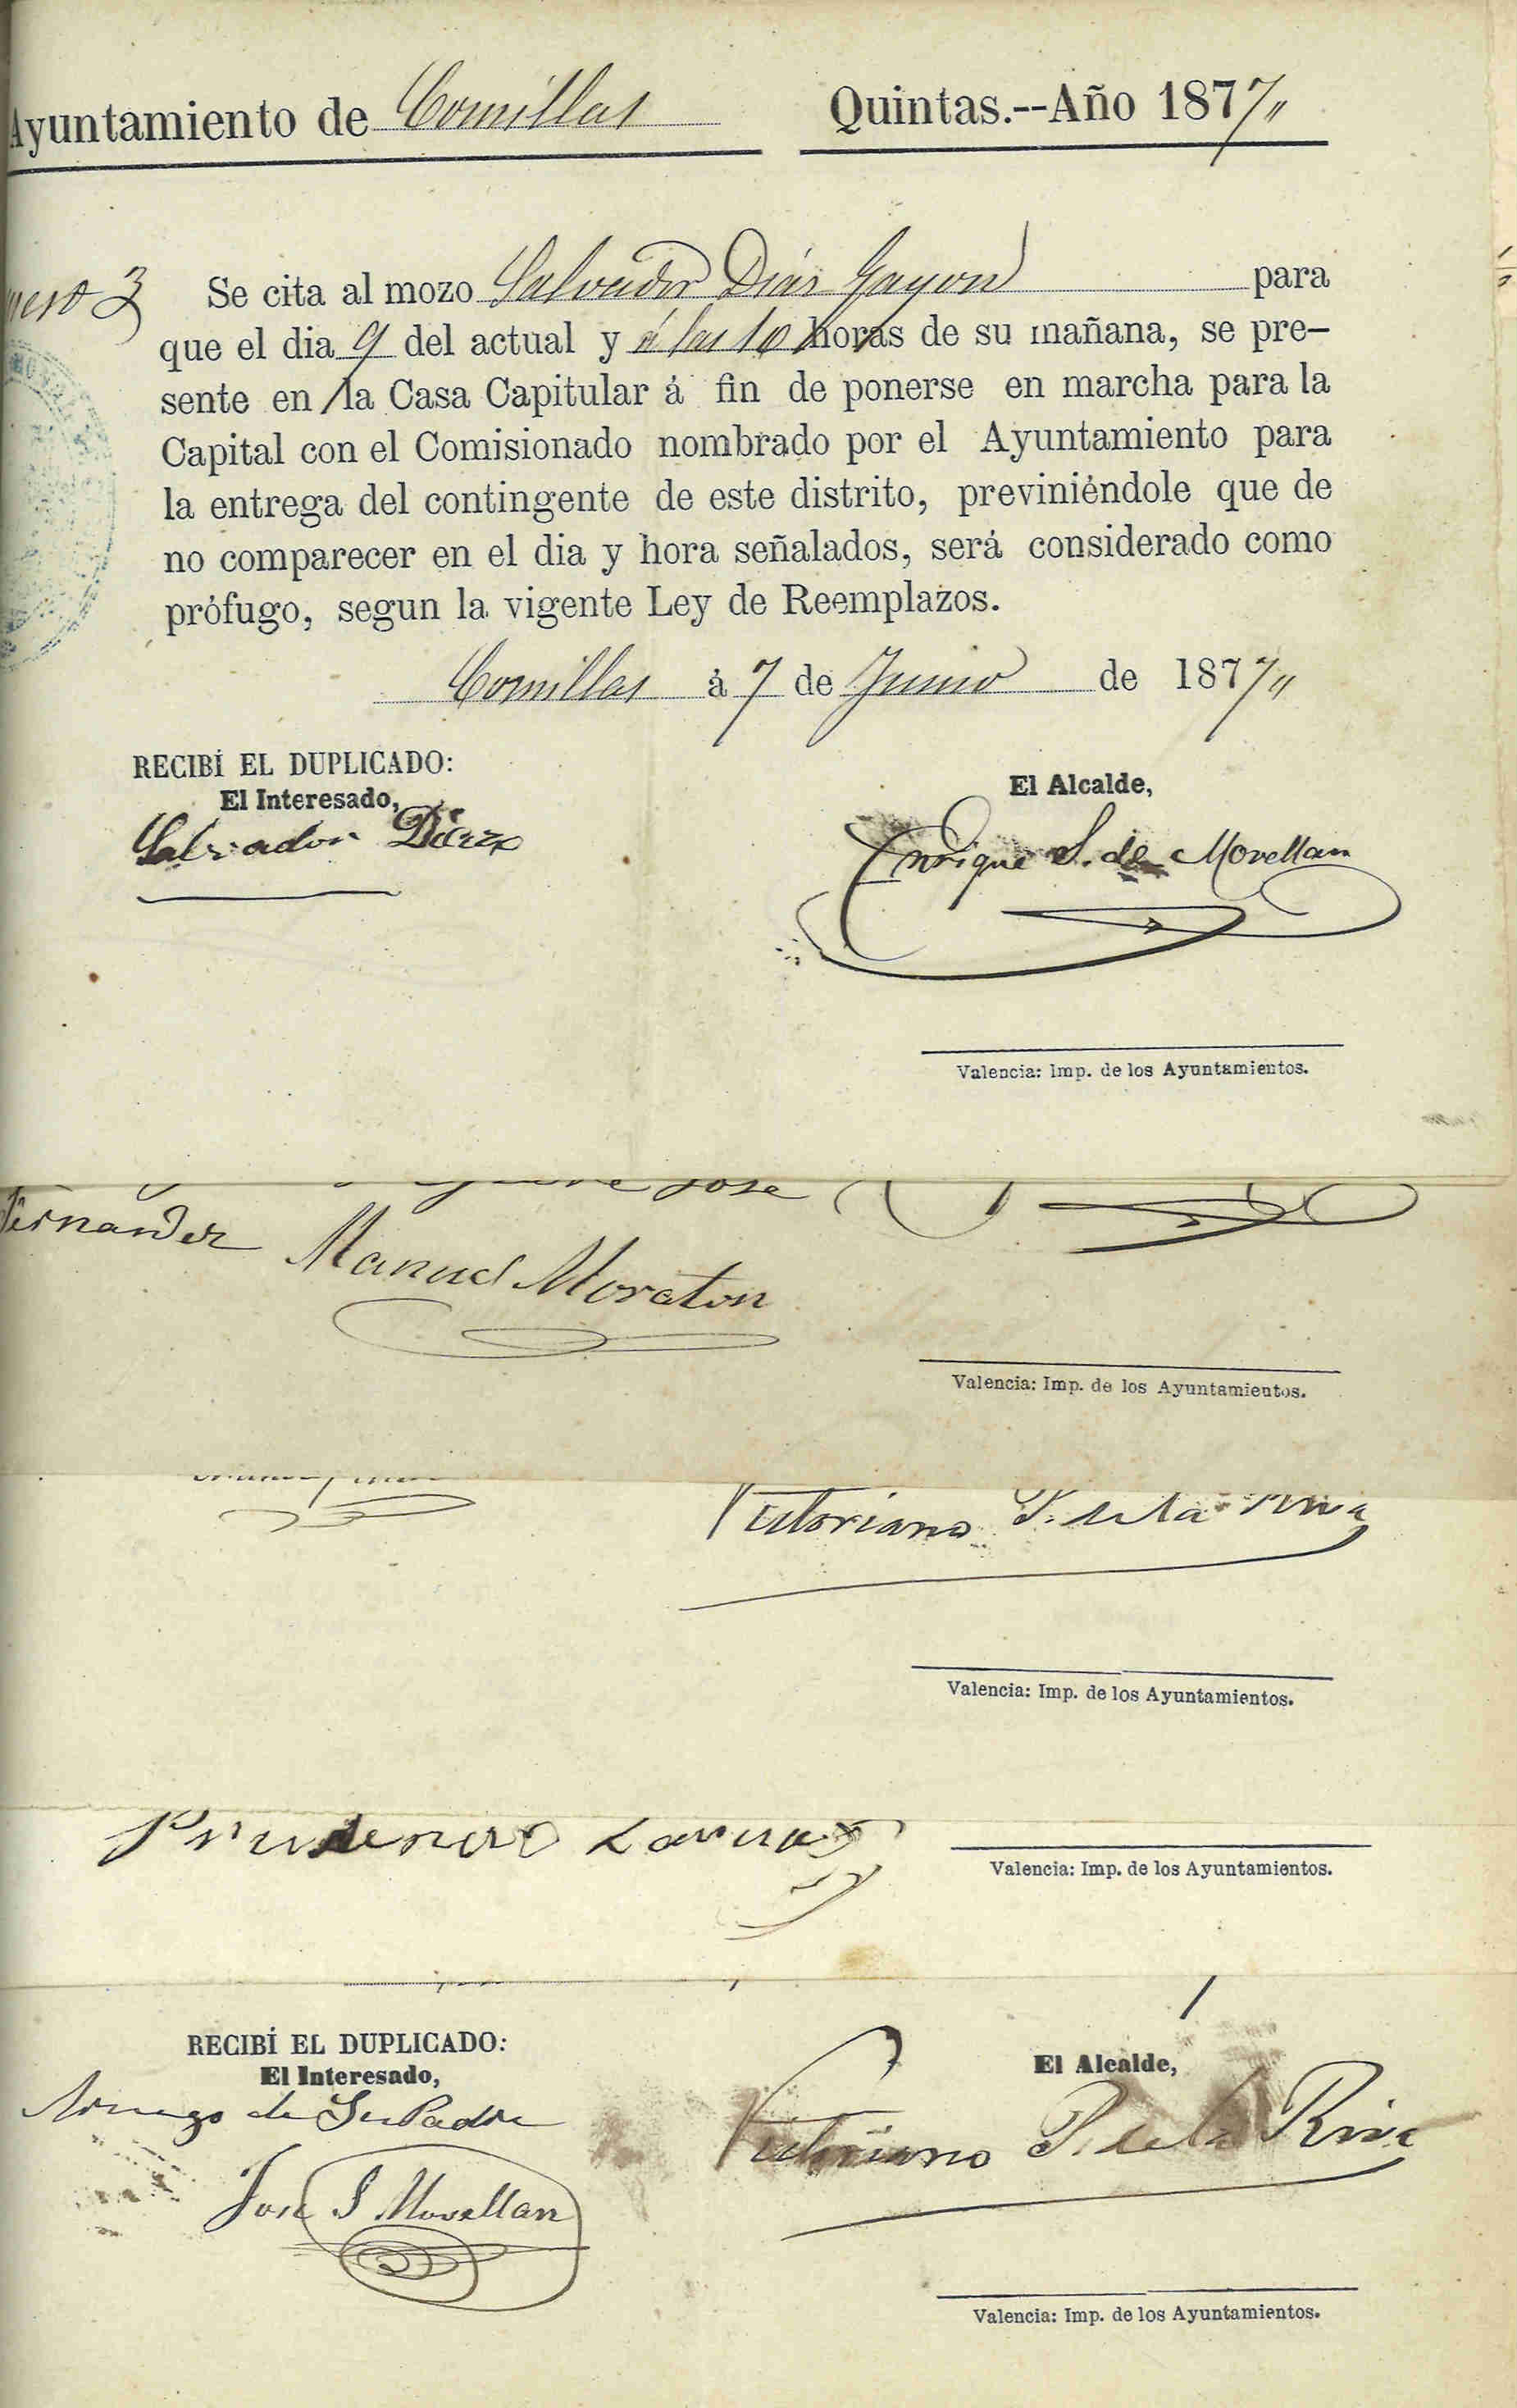 Ayuntamiento de Comillas Quintas.--Año 1877
3 Se cita al mozo Salvador Diaz Gayon para
que el dia 9 del actual y á las 10 horas de su mañana, se pre-
sente en la Casa Capitular á fin de ponerse en marcha para la
Capital con el Comisionado nombrado por el Ayuntamiento para
la entrega del contingente de este distrito, previniéndole que de
no comparecer en el dia y hora señalados, será considerado como
prófugo, segun la vigente Ley de Reemplazos.
Comillas á 7 de Junio de 1877
RECIBÍ EL DUPLICADO:
El Interesado,
Salvador Diaz
El Alcalde,
Enrique S. de Movellan
Valencia: Imp. de los Ayuntamientos.
Jose
Fernandez Manuel Moraton
Valencia: Imp. de los Ayuntamientos.
Victoriano P. de la Riva
Valencia: Imp. de los Ayuntamientos.
Prudencio
Valencia: Imp. de los Ayuntamientos.
RECIBÍ EL DUPLICADO:
El Interesado,
A ruego de Su Padre
Jose S Movellan
El Alcalde,
Victoriano P. de la Riva
Valencia: Imp. de los Ayuntamientos.